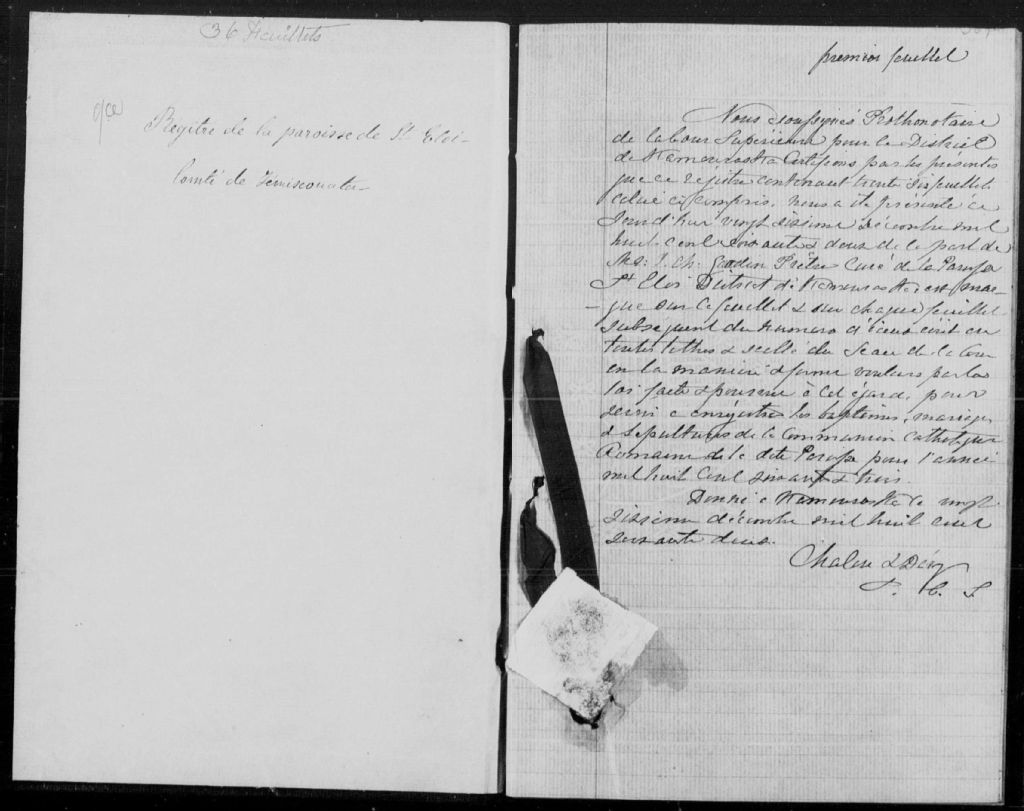 36 feuillets
Régitre de la paroisse de St Eloi-
Comté de Témiscouata-
premier feuillet
Nous soussignés Prothonotaire
de la Cour Supérieure pour le District
de Kamouraska Certifions par les présentes
que ce régitre contenant trente six feuillets
celui ci compris, nous a été présenté ce
Jourd'hui vingt sixième décembre mil
huit cent soixante & deux de la part de
J. Ch. Prêtre Curé de la Paroisse
St Eloi District de Kamouraska est mar-
-qué sur ce feuillet & sur chaque feuillet
subséquent du numéro d'iceux écrit en
toutes lettres & scellé du Sceau de la Cour
en la manière & forme voulues par la
loi faite & pourvue à cet égard, pour
servir à enrégistrer les baptêmes, mariages
& sépultures de la Communion Catholique
Romaine de la dite Paroisse pour l'année
mil huit cent soixante & trois.
Donné à Kamouraska le vingt
sixième décembre mil huit cent
soixante deux.
P. C. S.